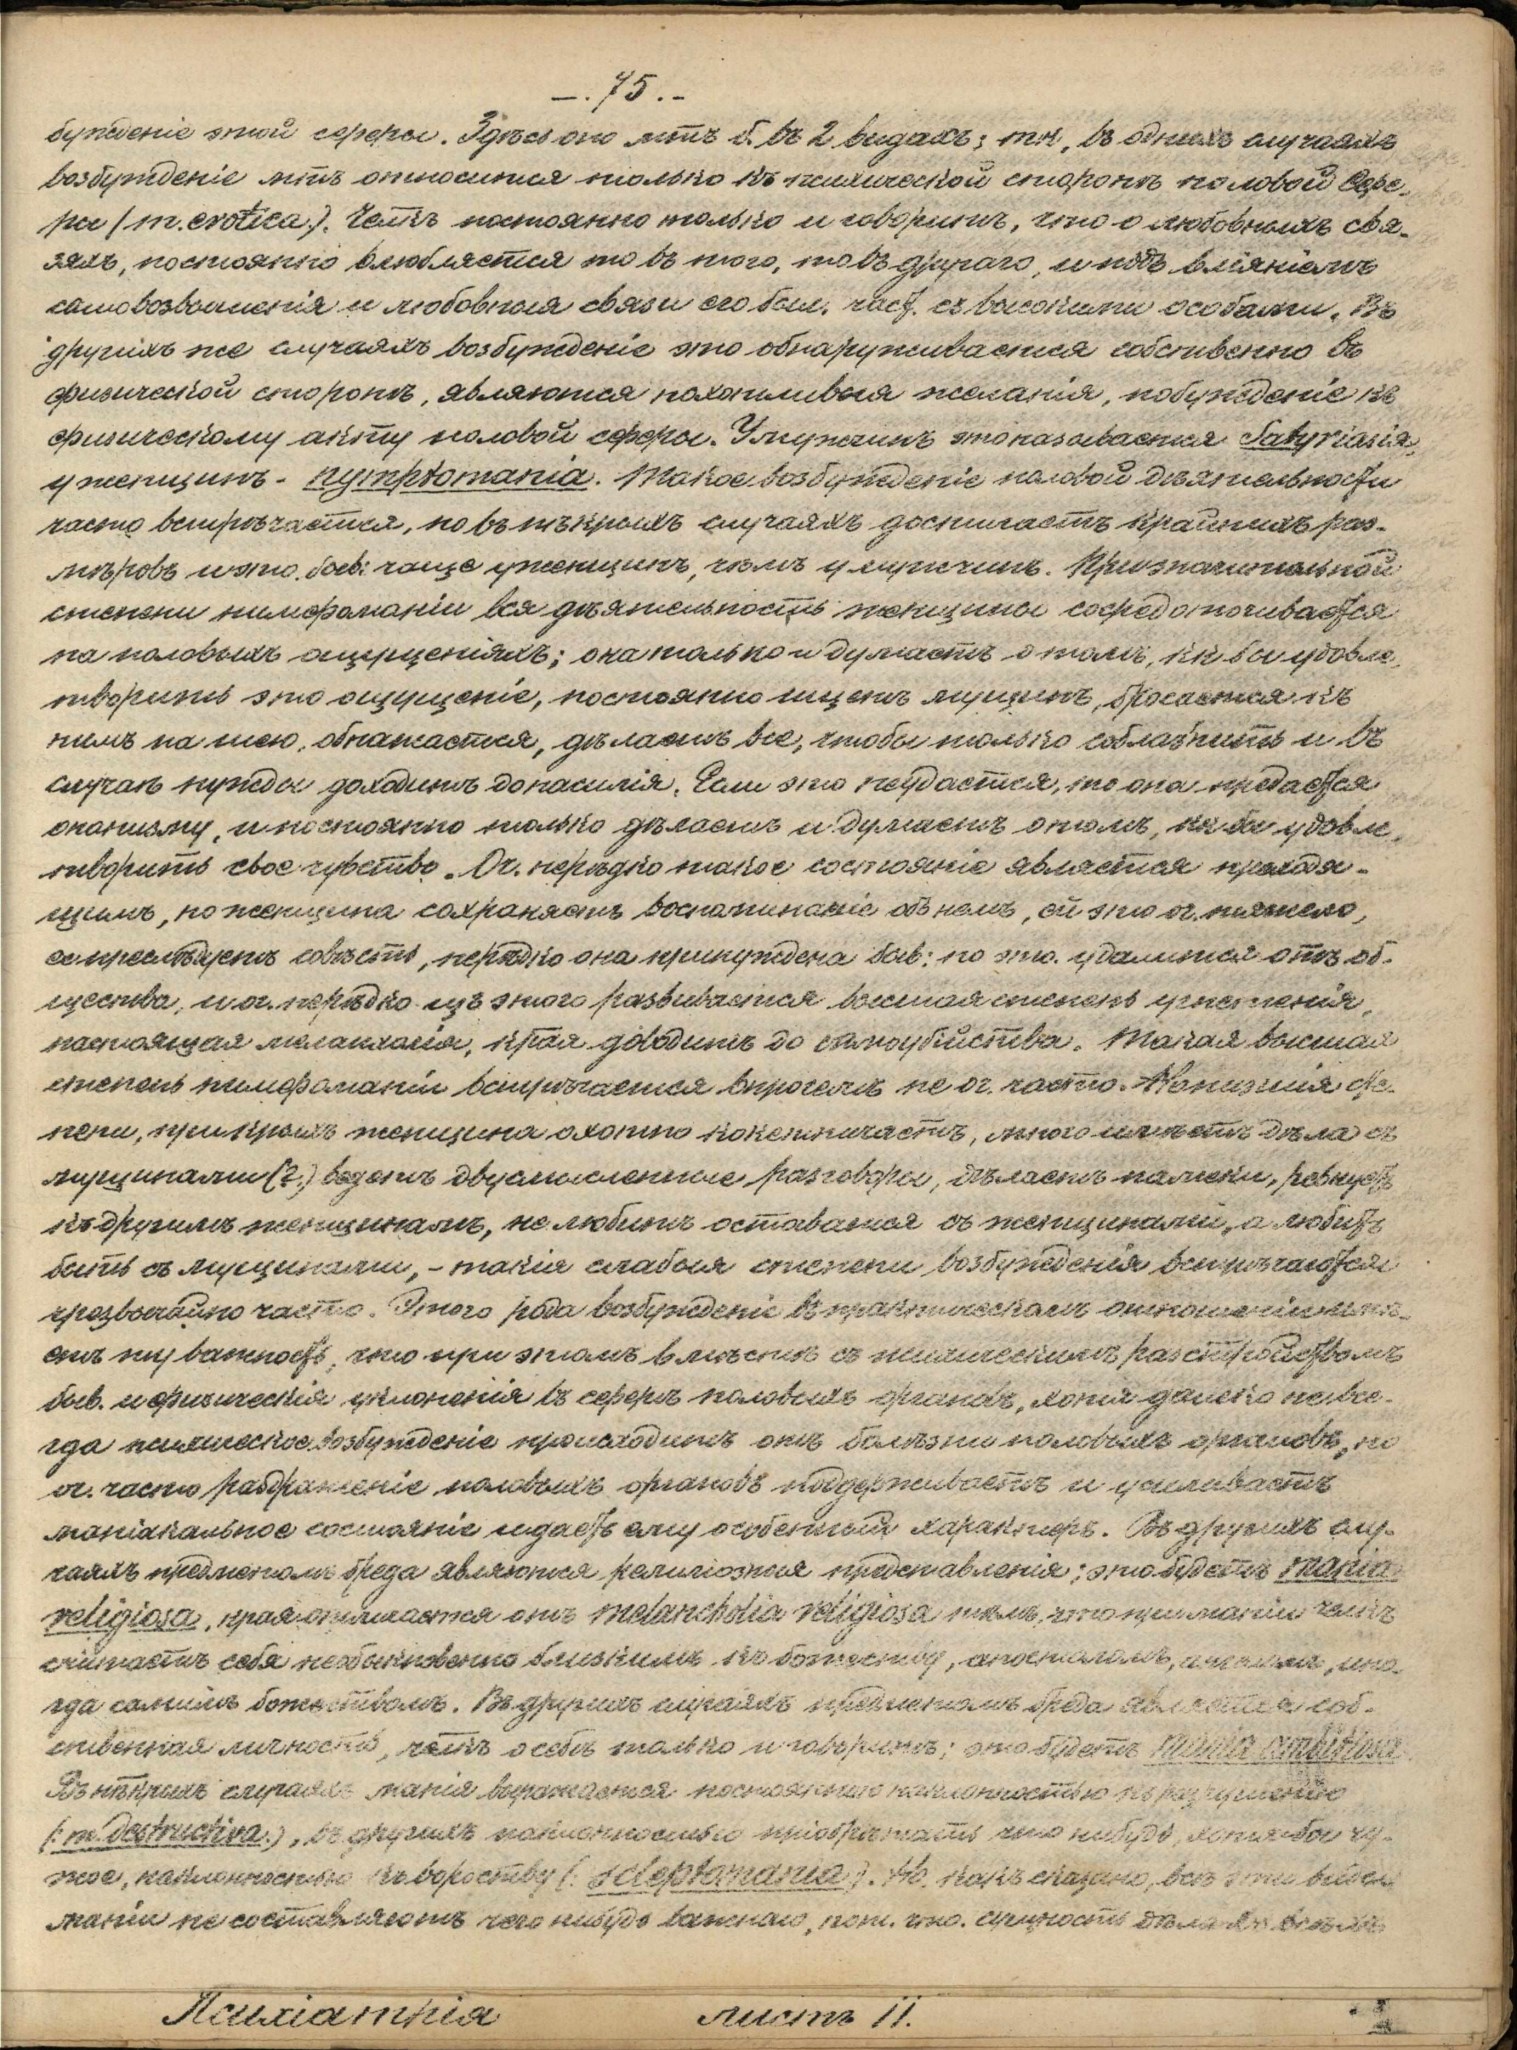 –.75.–
бужденіе этой сферы. Здѣсь оно мтъ б. въ 2 видахъ; тк, въ однихъ случаяхъ
возбужденіе мтъ относится только къ психической сторонѣ половой сфе-
ры (m. erotica.). Челкъ постоянно только и говоритъ, что о любовныхъ свя-
зяхъ, постоянно влюбляется то въ того, то въ другаго, и подъ вліяніемъ
самовозвышенія и любовныя связи его быв. част. съ высокими особами. Въ
другихъ же случаяхъ возбужденіе это обнаруживается собственно въ
физической сторонѣ, являются похотливыя желанія, побужденіе къ
физическому акту половой сферы. У мужчинъ это называется Satyriasis,
у женщинъ - nymphomania. Такое возбужденіе половой дѣятельности
часто встрѣчается, но въ нѣкрыхъ случаяхъ достигаетъ крайнихъ раз-
мѣровъ и это быв: чаще у женщинъ, чѣмъ у мужчинъ. При значительной
степени нимфоманіи вся дѣятельность женщины сосредоточивается
на половыхъ ощущеніяхъ; она только и думаетъ о томъ, кк бы удовле-
творить это ощущеніе, постоянно ищетъ мущинъ, бросается къ
нимъ на шею, обнажается, дѣлаетъ все, чтобы только соблазнить и въ
случаѣ нужды доходитъ до насилія. Если это неудается, то она предается
онанизму, и постоянно только дѣлаетъ и думаетъ о томъ, кк бы удовле-
творить свое чувство. Оч. нерѣдко такое состояніе является преходя-
щимъ, но женщина сохраняетъ воспоминаніе объ немъ, ей это оч. тяжело,
ее преслѣдуетъ совѣсть, нерѣдко она принуждена быв: по это. удалится отъ об-
щества, и оч. нерѣдко изъ этого развивается высшая степень угнетенія,
настоящая меланхолія, края доводитъ до самоубійства. Такая высшая
степень нимфоманіи встрѣчается впрочемъ не оч. часто. Но низшія сте-
пени, при крыхъ женщина охотно кокетничаетъ, много имѣетъ дѣла съ
мущинами (?.) ведетъ двусмысленные разговоры, дѣлаетъ намеки, ревнуетъ
къ другимъ женщинамъ, не любитъ оставаться съ женщинами, а любитъ
быть съ мущинами, - такія слабыя степени возбужденія встрѣчаются
чрезвычайно часто. Этого рода возбужденіе въ практическомъ отношеніи имѣ-
етъ ту важность, что при этомъ вмѣстѣ съ психическимъ разстройствомъ
быв. и физическія уклоненія въ сферѣ половыхъ органовъ, хотя далеко не все-
гда психическое возбужденіе происходитъ отъ болѣзни половыхъ органовъ, но
оч. часто раздраженіе половыхъ органовъ поддерживаетъ и усиливаетъ
маніакальное состояніе и даетъ ему особенный характеръ. Въ другихъ слу-
чаяхъ предметомъ бреда являются религіозныя представленія; это будетъ mania
religiosa, края отличается отъ melancholia religiosa тѣмъ, что при маніи челкъ
считаетъ себя необыкновенно близкимъ къ божеству, апостоломъ, ангеломъ, ино-
гда самимъ божествомъ. Въ другихъ случаяхъ предметомъ бреда является соб-
ственная личность, челкъ о себѣ только и говоритъ; это будетъ mania ambitiosa.
Въ нѣкрыхъ случаяхъ манія выражается постоянною наклонностью къ разрушенію
(: m. destructiva.), въ другихъ наклонностью пріобрѣтать что нибудь, хотя бы чу-
жое, наклонностью къ воровству (: kleptomania). Но, какъ сказано, всѣ эти виды
маніи не составляютъ чего нибудь важнаго, пот. что. сущность дѣла во всѣхъ
Психіатрія листъ 11.